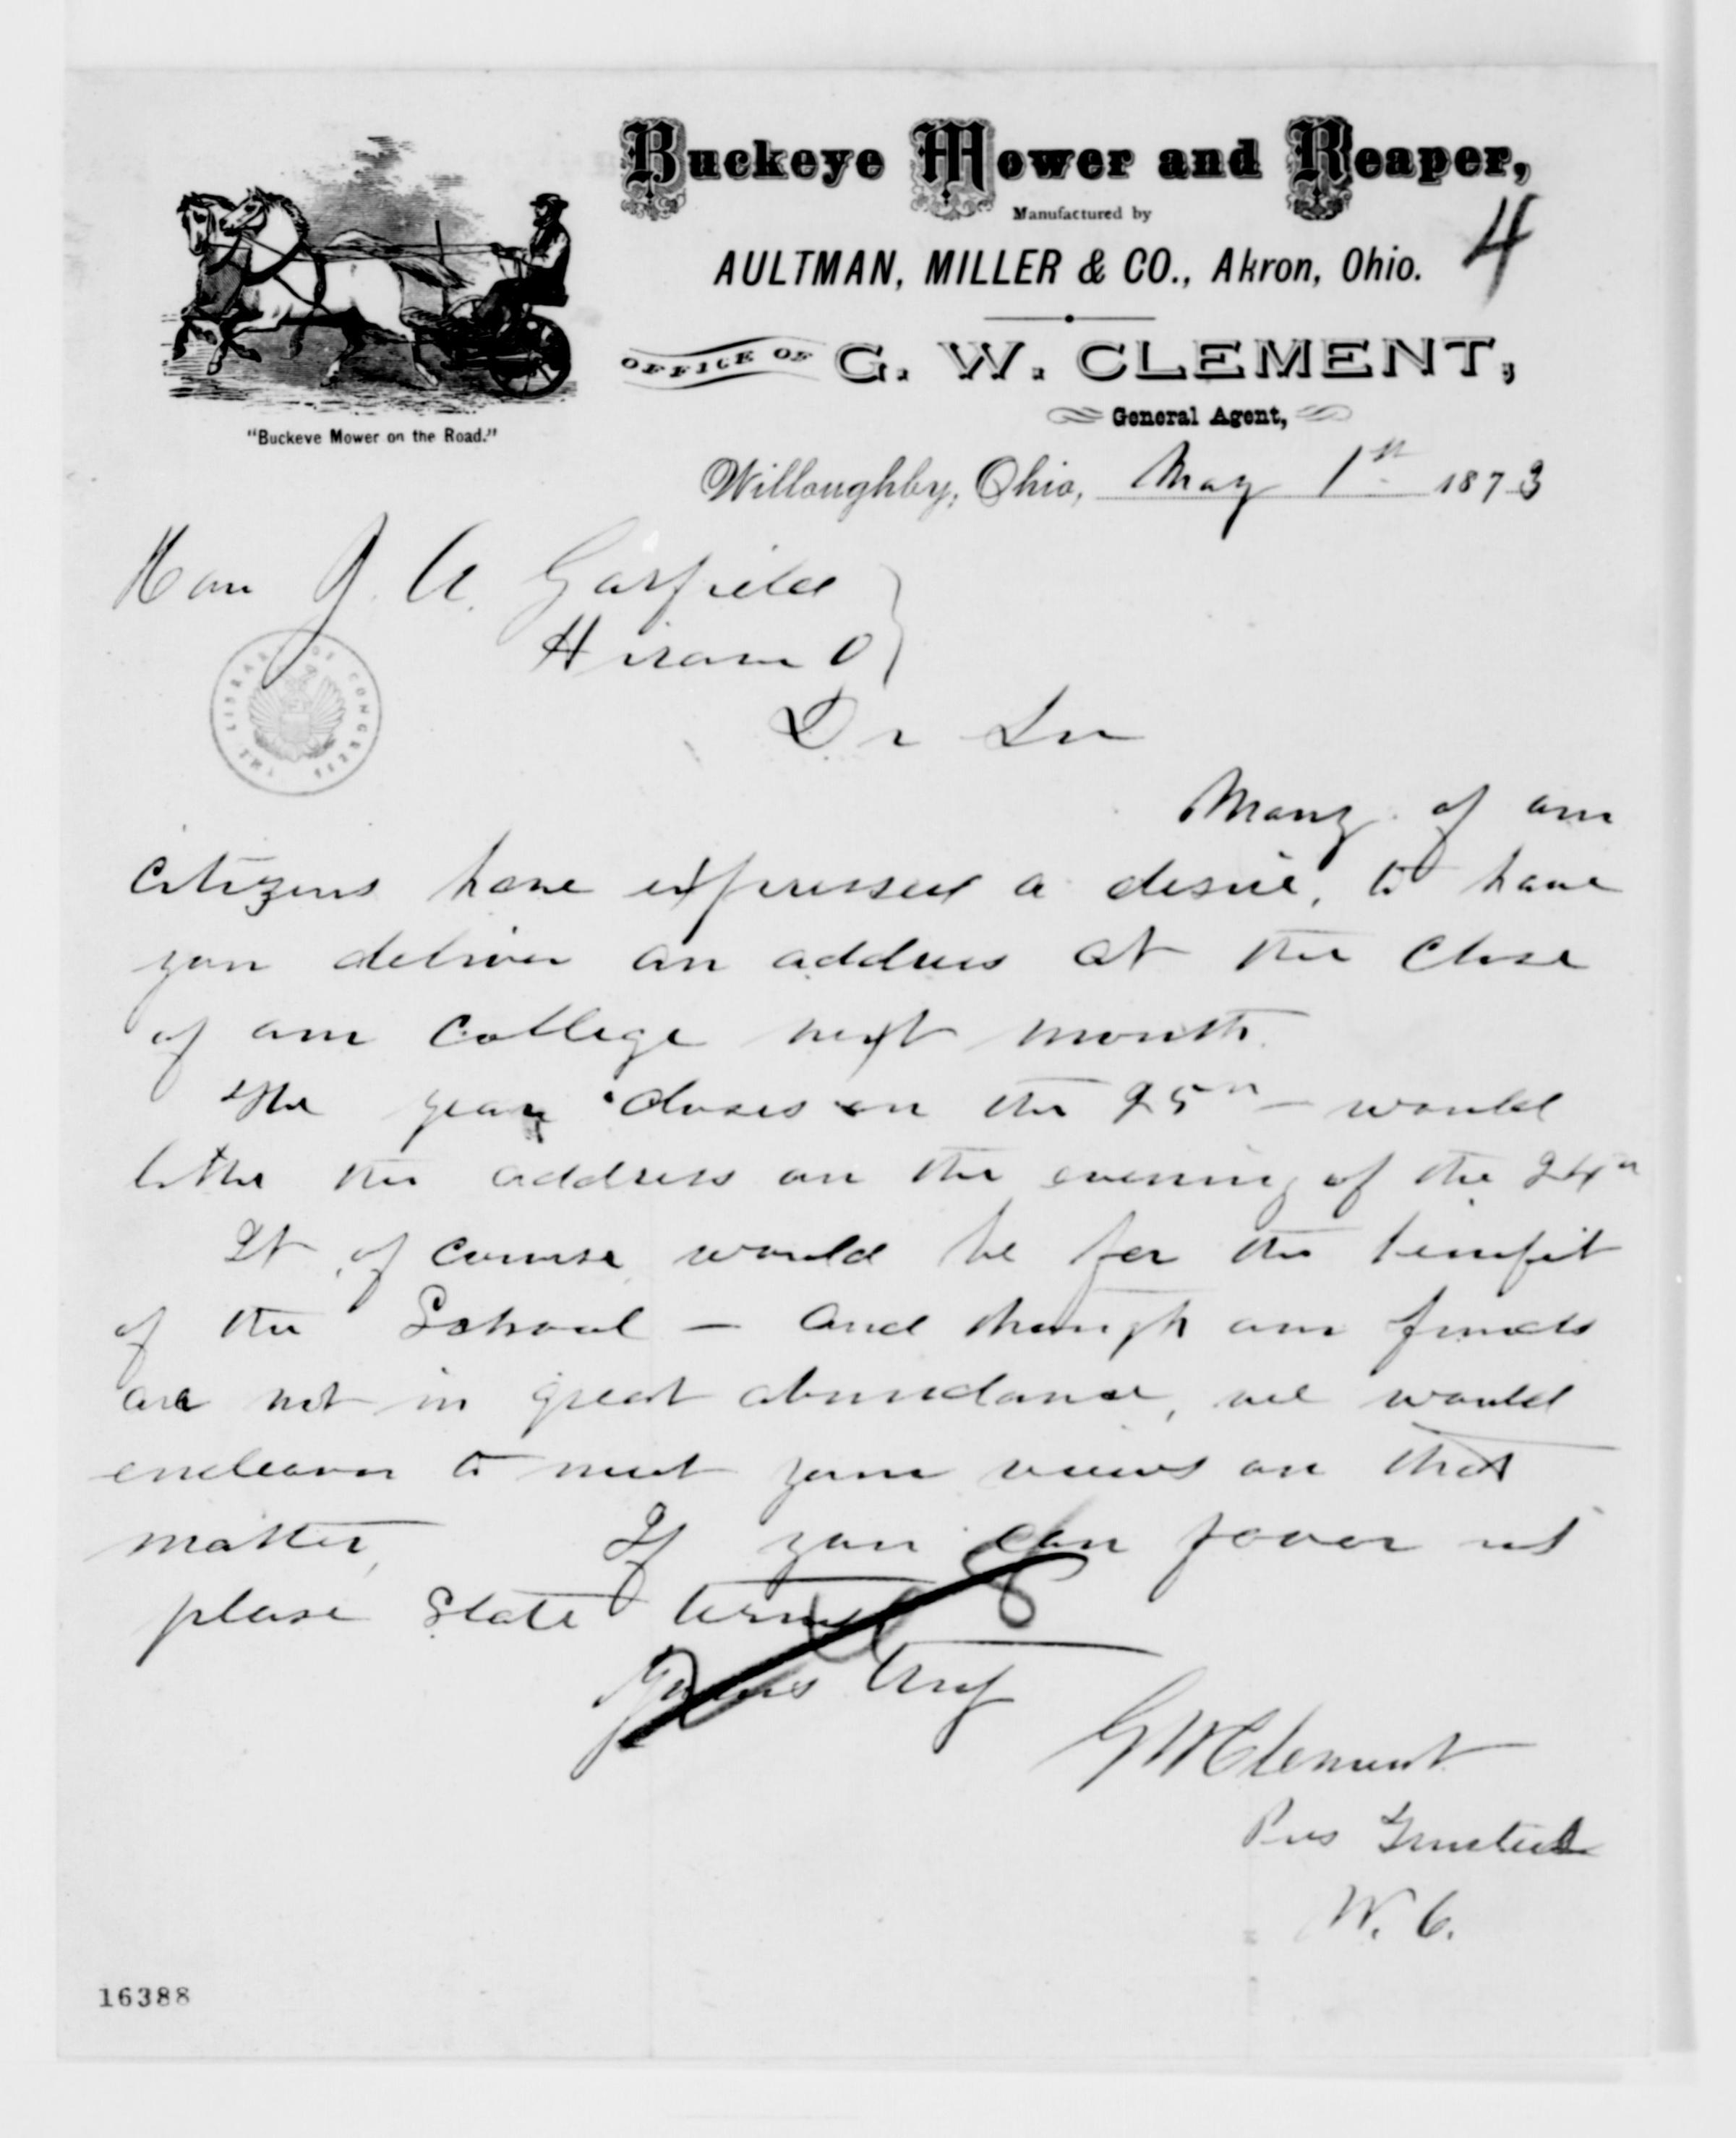 Buckeye Mower and Reaper,
Manufactured by
AULTMAN, MILLER & CO., Akron, Ohio.
4
OFFICE OF G. W. CLEMENT,
General Agent,
"Buckeye Mower on the Road."
Willoughby, Ohio, May 1st 1873
Hon J. A. Garfield
Hiram O
THE LIBRARY OF CONGRESS
Dr Sir
Many of our
citizens have expressed a desire, to have
you deliver an address at the close
of our College next month.
The year closes on the 25th – would
like the address on the evening of the 24th
It of course would be for the benefit
of the School – and though our funds
are not in great abundance, we would
endeavor to meet your views on that
matter, If you can favor us
please state terms
Yours Truly
G W Clement
Pres Trustees
W. C.
16388